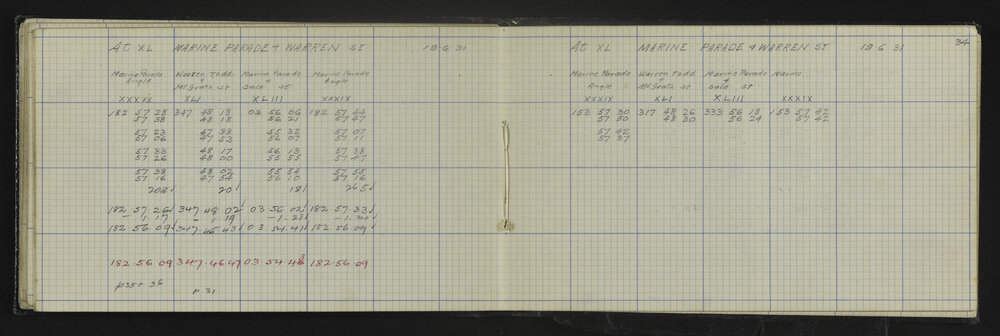 At XL MARINE PARADE & WARREN St 19.6.31
Marine Parade Warren Todd Marine Parade Marine Parade
Angle & & Angle
McGrath St Sale St
XXXIX XLI XLIII XXXIX
182 57 28 347 48 18 03 56 06 182 57 42
57 38 48 18 56 21 57 47
57 23 47 38 55 32 57 07
57 06 47 53 56 07 57 11
57 33 48 17 56 13 57 38
57 26 48 00 55 55 57 47
57 38 48 02 55 54 57 55
57 16 47 54 56 10 57 16
208 20 181 265
182.57.26 347.48.02 03 56 02 182.57.33
-1.17 -1.19 -1.21 -1.24
182 56.09 347.46.43 03.54.41 182 56.09
182.56.09 347.46.47 03.54.43 182.56.09
p35+38
p 31
34
At XL MARINE PARADE & WARREN St 19.6.31
Marine Parade Warren Todd Marine Parade Marine
Angle & &
McGrath St Sale St
XXXIX XLI XLIII XXXIX
153 57 30 317 48 26 333 56 18 153 57 42
57 50 48 30 56 24 57 42
57 42
57 37